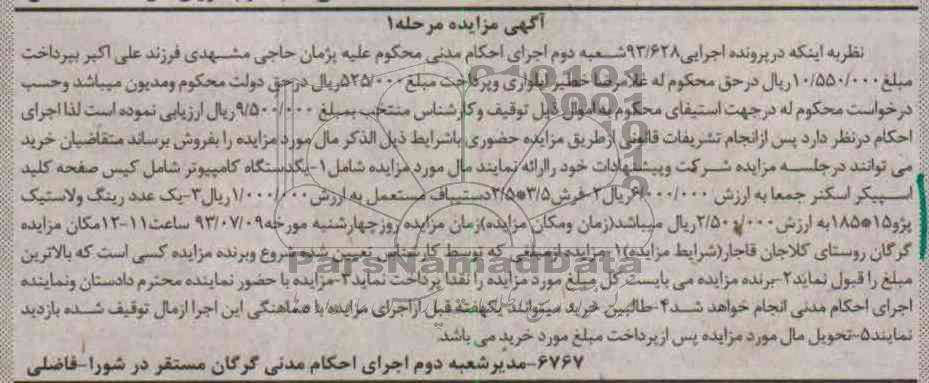 آگهی مزایده مرحله۱
نظربه اینکه درپرونده اجرایی۹۳/۶۲۸شعبه دوم اجرای احکام مدنی محکوم علیه پژمان حاجی مشهدی فرزند علی اکبر بپرداخت
مبلغ۱۰/۵۵۰/۰۰۰ریال درحق محکوم له غلامرضا خطیر ایلواری وپرداخت مبلغ ۵۲۵/۰۰۰ریال درحق دولت محکوم ومدیون میباشد وحسب
درخواست محکوم له درجهت استیفای محکوم به اموال ذیل توقیف وکارشناس منتخب بمبلغ ۹/۵۰۰/۰۰۰ریال ارزیابی نموده است لذا اجرای
احکام درنظر دارد پس ازانجام تشریفات قانونی ازطریق مزایده حضوری باشرایط ذیل الذکر مال مورد مزایده را بفروش برساند متقاضیان خرید
می توانند درجلسه مزایده شرکت وپیشنهادات خود راارائه نمایند مال مورد مزایده شامل ۱-یکدستگاه کامپیوتر شامل کیس صفحه کلید
اسپیکر اسکنر جمعا به ارزش ۶/۰۰۰/۰۰۰ریال۲-فرش۳/۵*۲/۵دستبافت مستعمل به ارزش۱/۰۰۰/۰۰۰ریال۳-یک عدد رینگ ولاستیک
پژو۱۵*۱۸۵به ارزش ۲/۵۰۰/۰۰۰ریال میباشد(زمان ومکان مزایده)زمان مزایده روزچهارشنبه مورخه۹۳/۰۷/۰۹ ساعت۱۱-۱۲مکان مزایده
گرگان روستای کلاجان قاجار(شرایط مزایده)۱-مزایده ازمبلغی که توسط کارشناس تعیین شده شروع وبرنده مزایده کسی است که بالاترین
مبلغ را قبول نماید۲-برنده مزایده می بایست کل مبلغ مورد مزایده را نقدا پرداخت نماید۳-مزایده با حضور نماینده محترم دادستان ونماینده
اجرای احکام مدنی انجام خواهد شد۴-طالبین خرید میتوانند یکهفته قبل ازاجرای مزایده با هماهنگی این اجرا ازمال توقیف شده بازدید
نمایند۵-تحویل مال مورد مزایده پس ازپرداخت مبلغ مورد خرید می باشد.
۶۷۶۷-مدیرشعبه دوم اجرای احکام مدنی گرگان مستقر در شورا-فاضلی
ParsNamadData